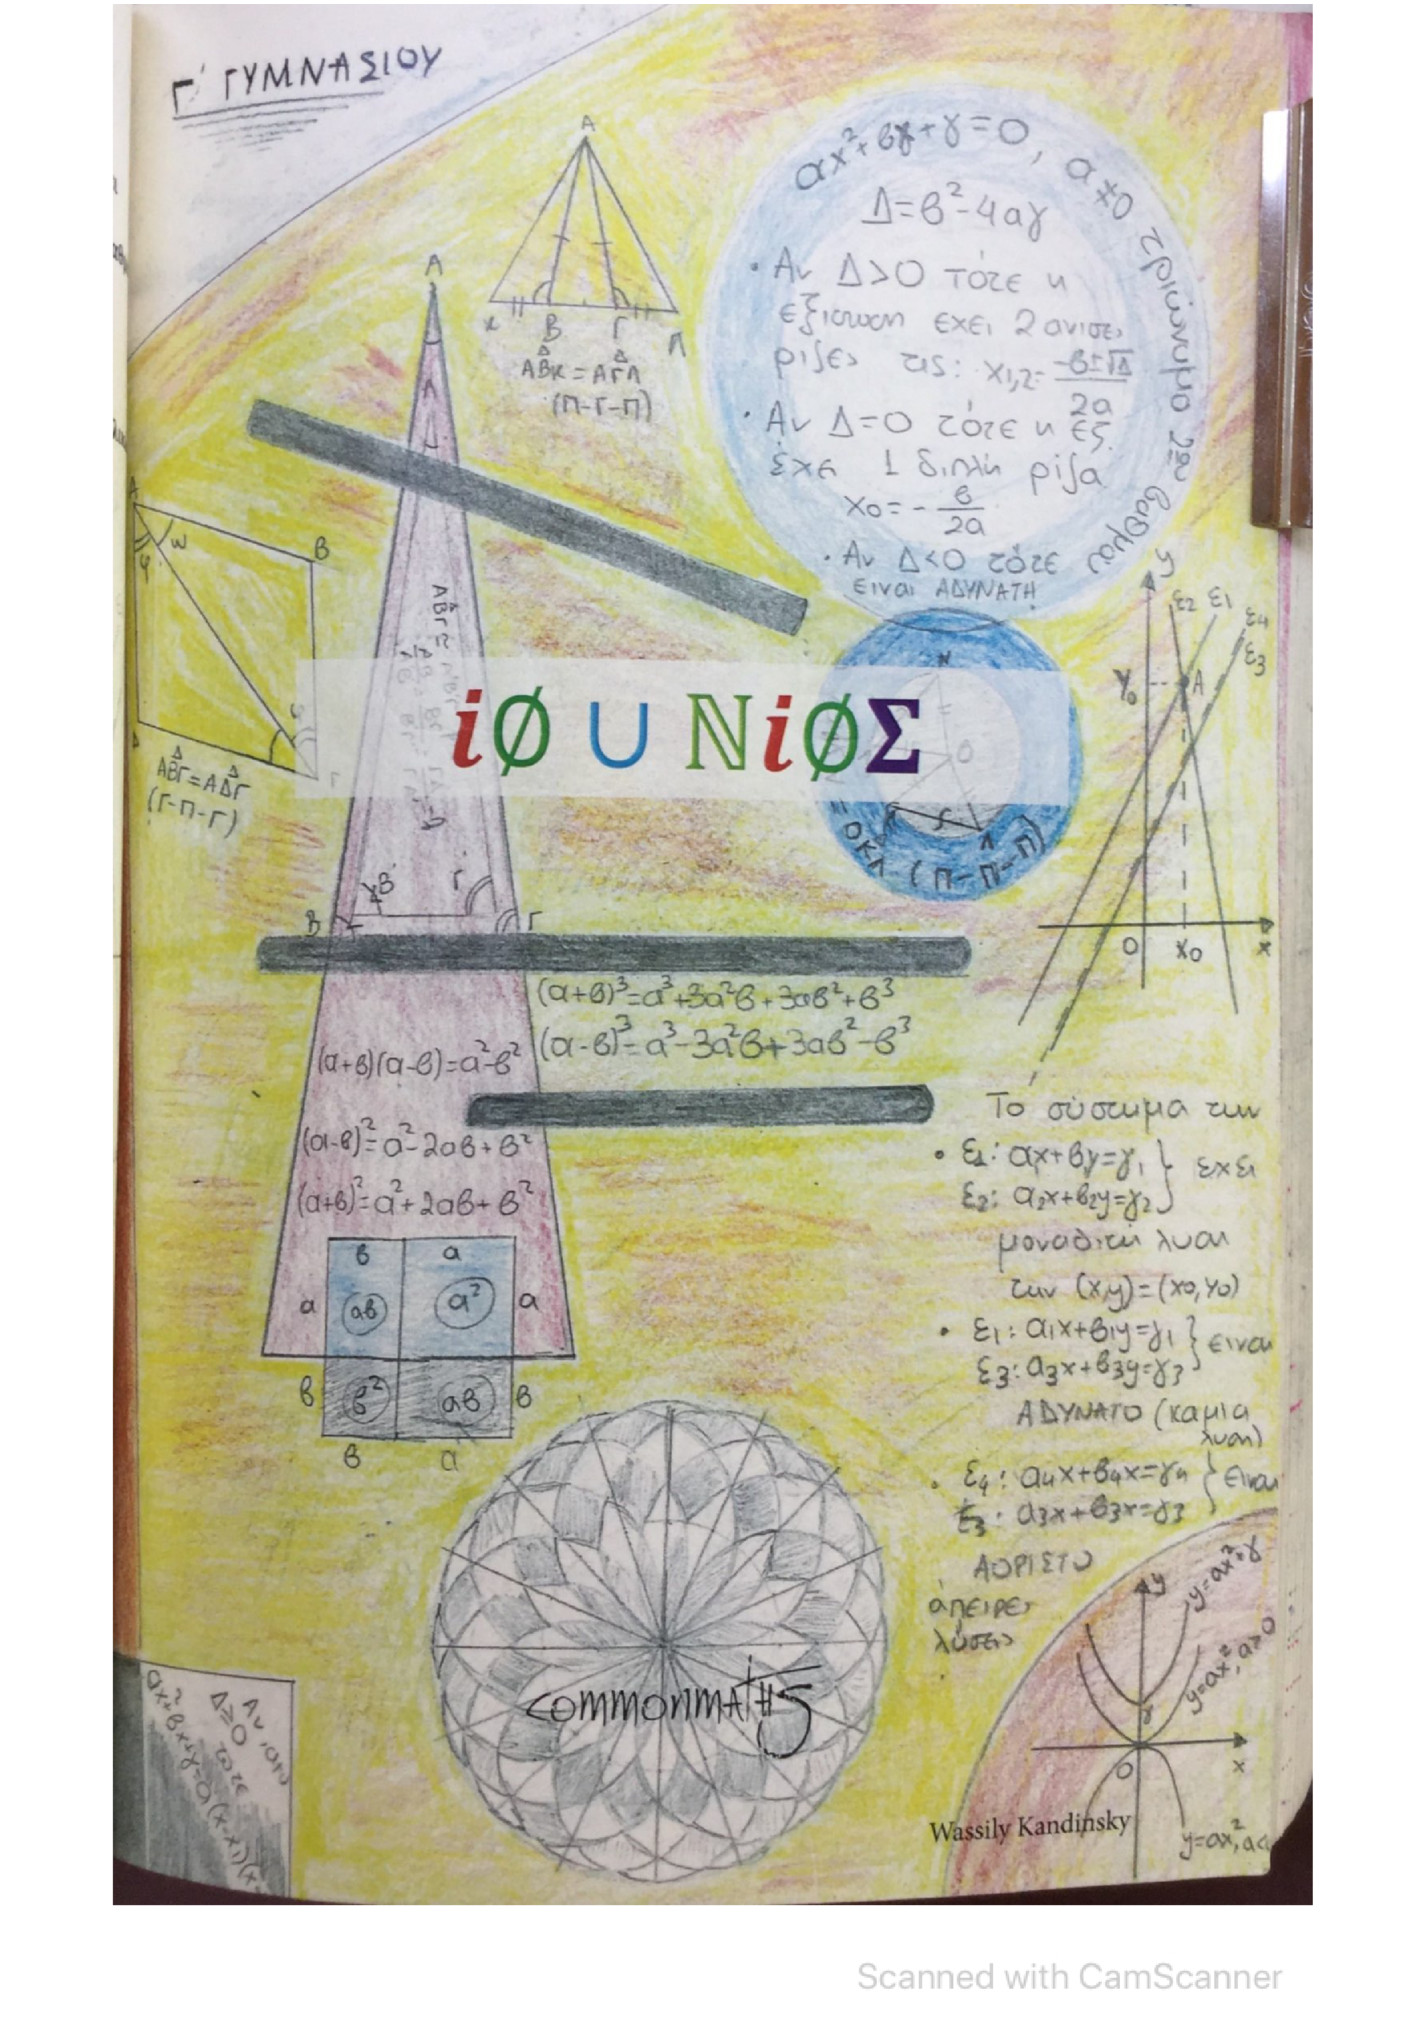 Γ' ΓΥΜΝΑΣΙΟΥ
Α
Κ Β Γ Λ
ΑΒΚ = ΑΓΛ
(Π-Γ-Π)
αx²+βx+γ=0, α≠0 τριώνυμο 2ου βαθμού
Δ=β²-4αγ
• Αν Δ>0 τότε η
εξίσωση εχει 2 ανισες
ριζες τις: x1,2= -β±√Δ
2α
• Αν Δ=0 τότε η εξ.
έχει 1 διπλή ρίζα
x0= - β
2α
• Αν Δ<0 τότε
ειναι ΑΔΥΝΑΤΗ
Α
Α
ω
φ
Β
Δ
Γ
ΑΒΓ=ΑΔΓ
(Γ-Π-Γ)
iØ ∪ ℕiØΣ
Ο
=ΟΚΛ (Π-Π-Π)
y
ε2 ε1 ε4
ε3
y0
Α
Ο x0 x
Β' Γ'
Β Γ
(α+β)³=α³+3α²β+3αβ²+β³
(α-β)³=α³-3α²β+3αβ²-β³
(α+β)(α-β)=α²-β²
(α-β)²=α²-2αβ+β²
(α+β)²=α²+2αβ+β²
β α
α αβ α² α
β β² αβ β
β α
Το σύστημα των
• ε1: αx+βy=γ1 } εχει
ε2: α2x+β2y=γ2
μοναδική λυση
την (x,y)=(x0,y0)
• ε1: α1x+β1y=γ1 } ειναι
ε3: α3x+β3y=γ3
ΑΔΥΝΑΤΟ (καμια
λυση)
• ε4: α4x+β4x=γ4 } ειναι
ε3: α3x+β3x=γ3
ΑΟΡΙΣΤΟ
άπειρες
λύσεις
COMMONMATHS
Αν
Δ≥0 τοτε
αx²+βx+γ=α(x-x1)(x-
y
y=αx²+γ
y=αx², α>0
γ
Ο x
y=αx², α<
Wassily Kandinsky
Scanned with CamScanner